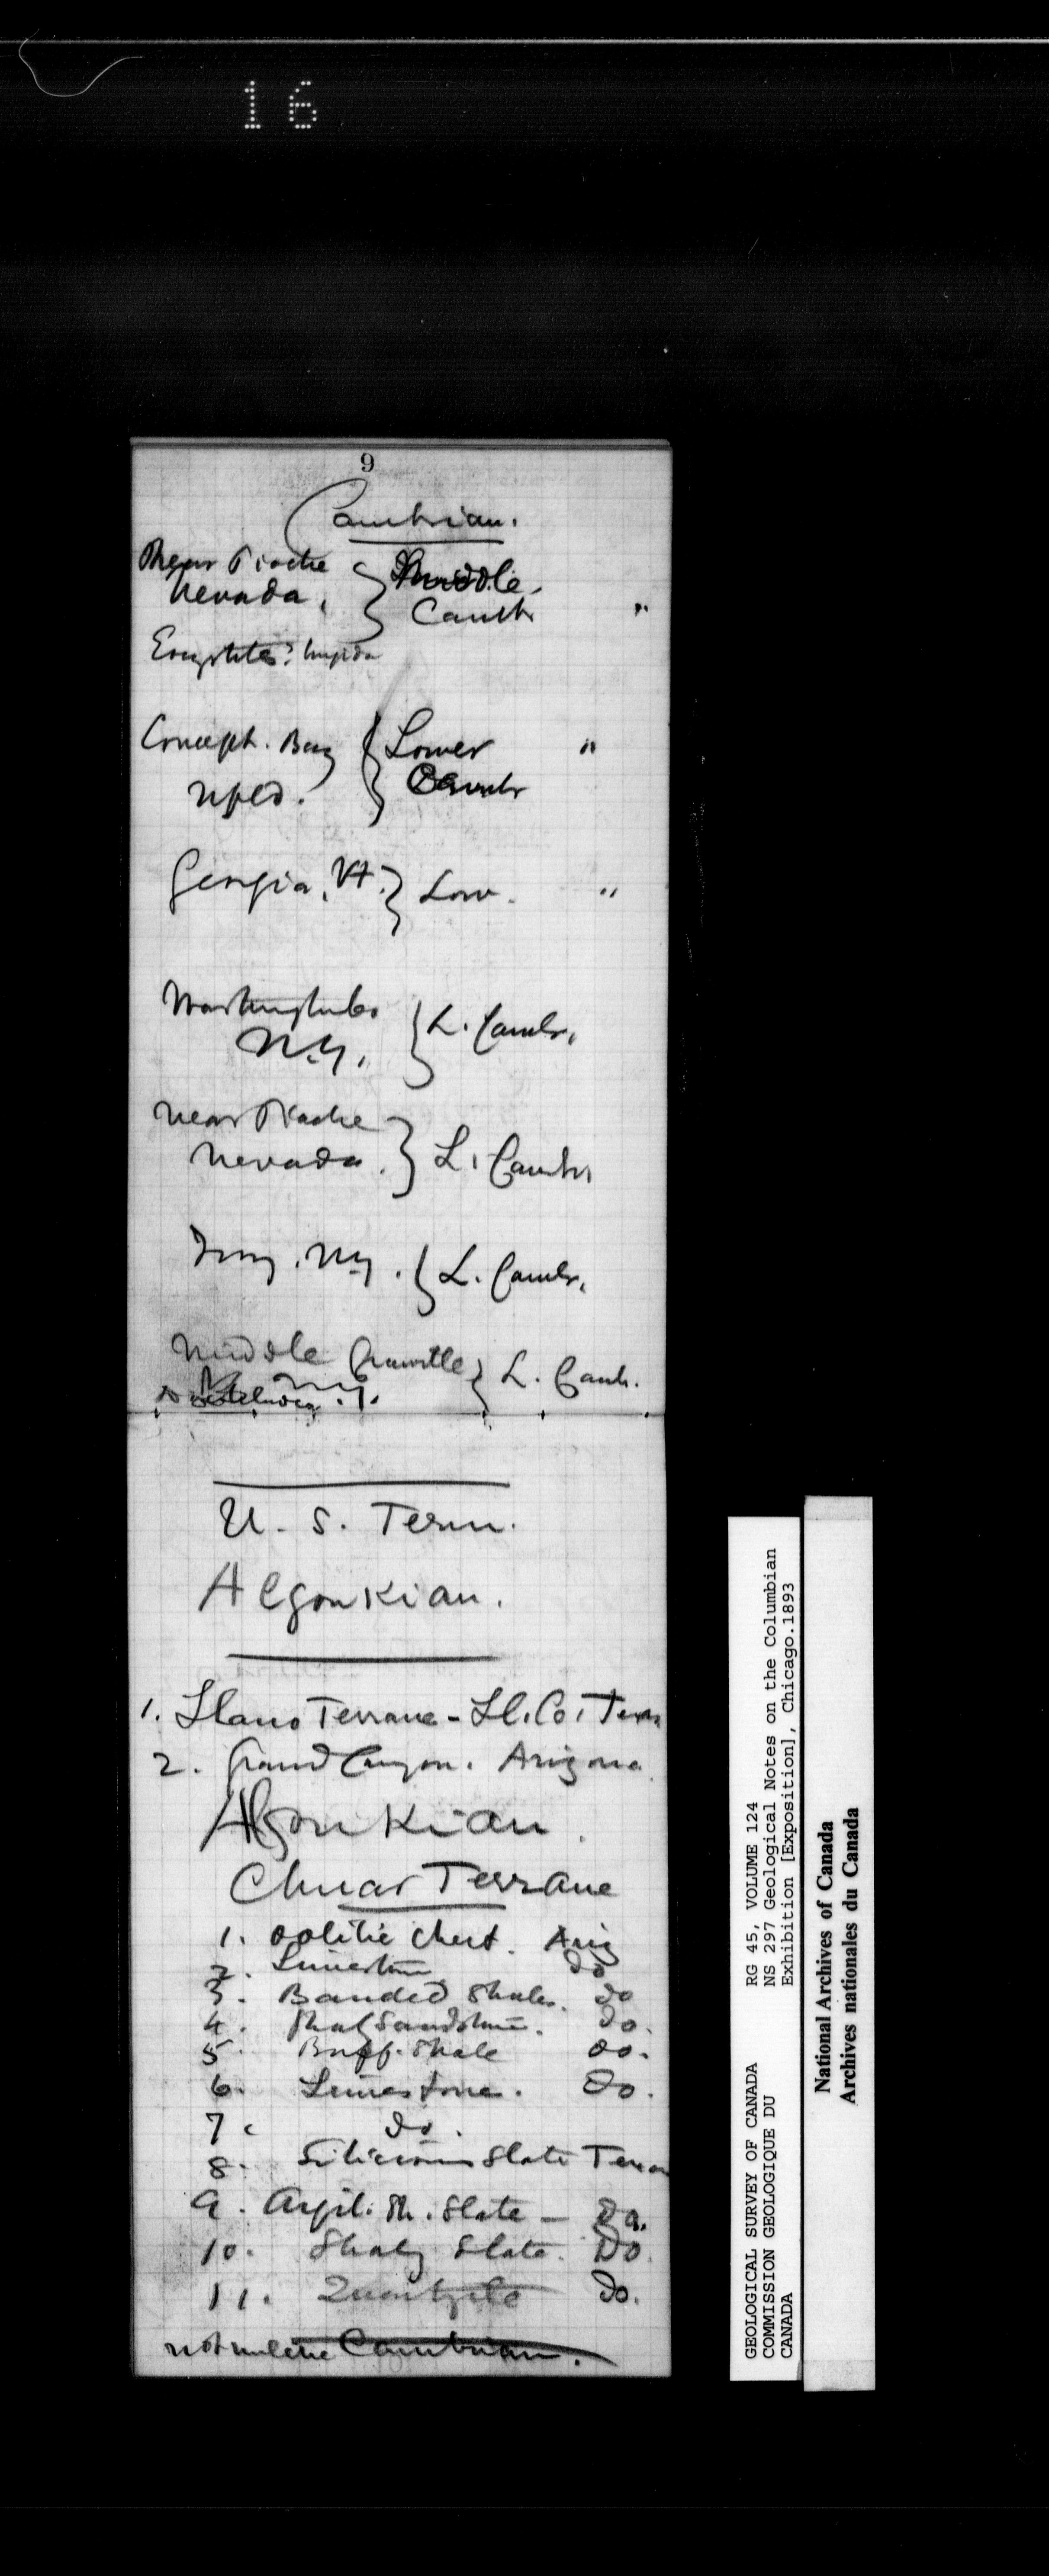 16
9
Cambrian.
Near Pioche
Nevada,
} Middle
Cambr "
Eocystites?
Concept. Bay
Nfld.
} Lower "
Cambr
Georgia, Vt. } Low. "
Washington Co
N.Y.
} L. Cambr,
Near Pioche
Nevada.
} L. Cambr
Troy, N.Y. } L. Cambr.
Middle Granville
N.Y.
} L. Camb.
U. S. Term.
Algonkian.
1. Llano Terrane - Ll. Co, Texas
2. Grand Canyon. Arizona
Algonkian.
Chuar Terrane
1. oolitic chert. Ariz
2. Limestone do
3. Banded Shales. do
4. Shaly Sandstone. do.
5. Buff. Shale do.
6. Limestone. Do.
7. do.
8. Silicious Slate Texas
9. Argil. Sh. Slate - Do.
10. Shaly Slate. Do.
11. Quartzite Do.
Cambrian.
GEOLOGICAL SURVEY OF CANADA RG 45, VOLUME 124
COMMISSION GEOLOGIQUE DU NS 297 Geological Notes on the Columbian
CANADA Exhibition [Exposition], Chicago.1893
National Archives of Canada
Archives nationales du Canada